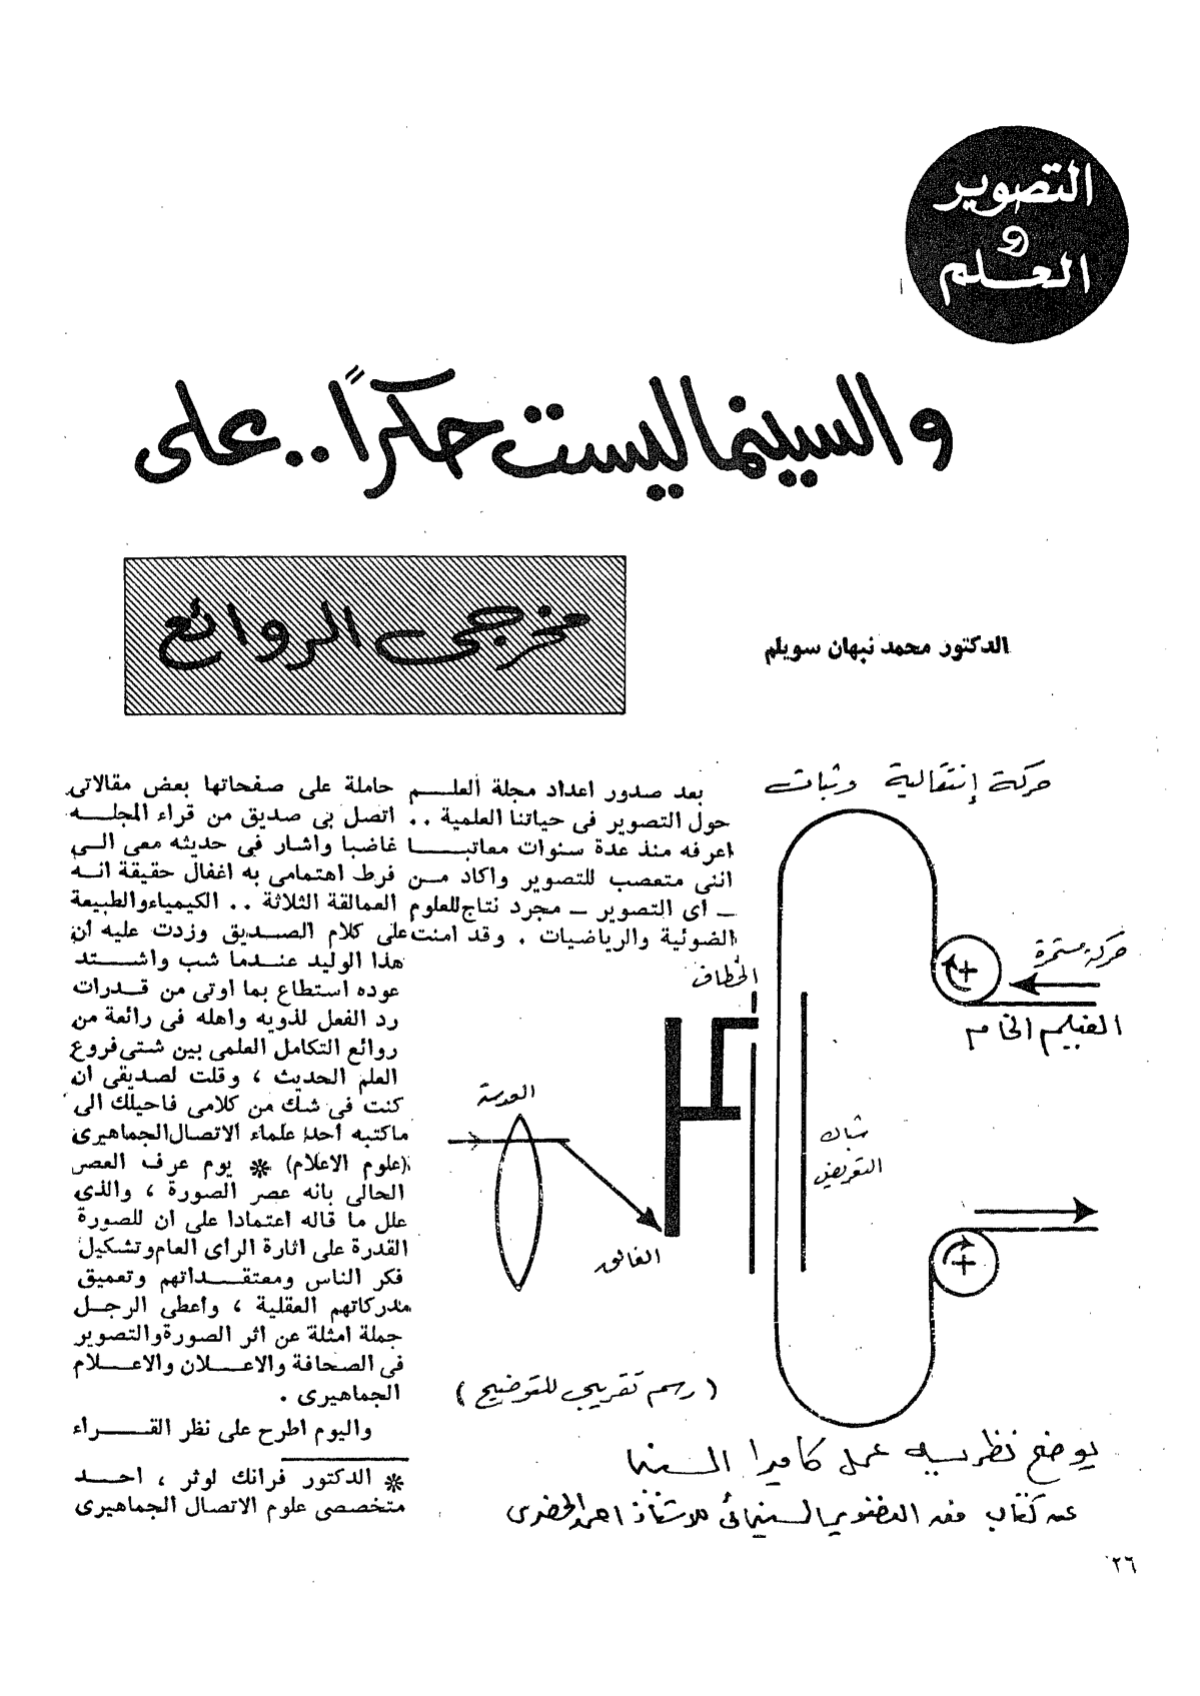 التصوير
و
العلم
والسينما ليست حكراً .. على
مخرجى الروائع
الدكتور محمد نبهان سويلم
بعد صدور اعداد مجلة العلم حاملة على صفحاتها بعض مقالاتى
حول التصوير فى حياتنا العلمية .. اتصل بى صديق من قراء المجله
اعرفه منذ عدة سنوات معاتبا غاضبا واشار فى حديثه معى الى
اننى متعصب للتصوير واكاد من فرط اهتمامى به اغفال حقيقة انه
ــ اى التصوير ــ مجرد نتاج للعلوم العمالقة الثلاثة .. الكيمياء والطبيعة
الضوئية والرياضيات . وقد امنت على كلام الصديق وزدت عليه أن
هذا الوليد عندما شب واشتد
عوده استطاع بما اوتى من قدرات
رد الفعل لذويه واهله فى رائعة من
روائع التكامل العلمى بين شتى فروع
العلم الحديث ، وقلت لصديقى ان
كنت فى شك من كلامى فاحيلك الى
ماكتبه احد علماء الاتصال الجماهيرى
(علوم الاعلام) * يوم عرف العصر
الحالى بانه عصر الصورة ، والذى
علل ما قاله اعتمادا على ان للصورة
القدرة على اثارة الراى العام وتشكيل
فكر الناس ومعتقداتهم وتعميق
مدركاتهم العقلية ، واعطى الرجل
جملة امثلة عن اثر الصورة والتصوير
فى الصحافة والاعلان والاعلام
الجماهيرى .
واليوم اطرح على نظر القراء
* الدكتور فرانك لوثر ، احد
متخصصى علوم الاتصال الجماهيرى
حركة إنتقالية وثبات
حركة مستمرة
الفيلم الخام
الخطاف
العدسة
شباك
التعريض
الغالق
( رسم تقريبى للتوضيح )
يوضح نظرية عمل كاميرا السينما
عن كتاب فن التصوير السينمائى للاستاذ احمد الحضرى
٢٦